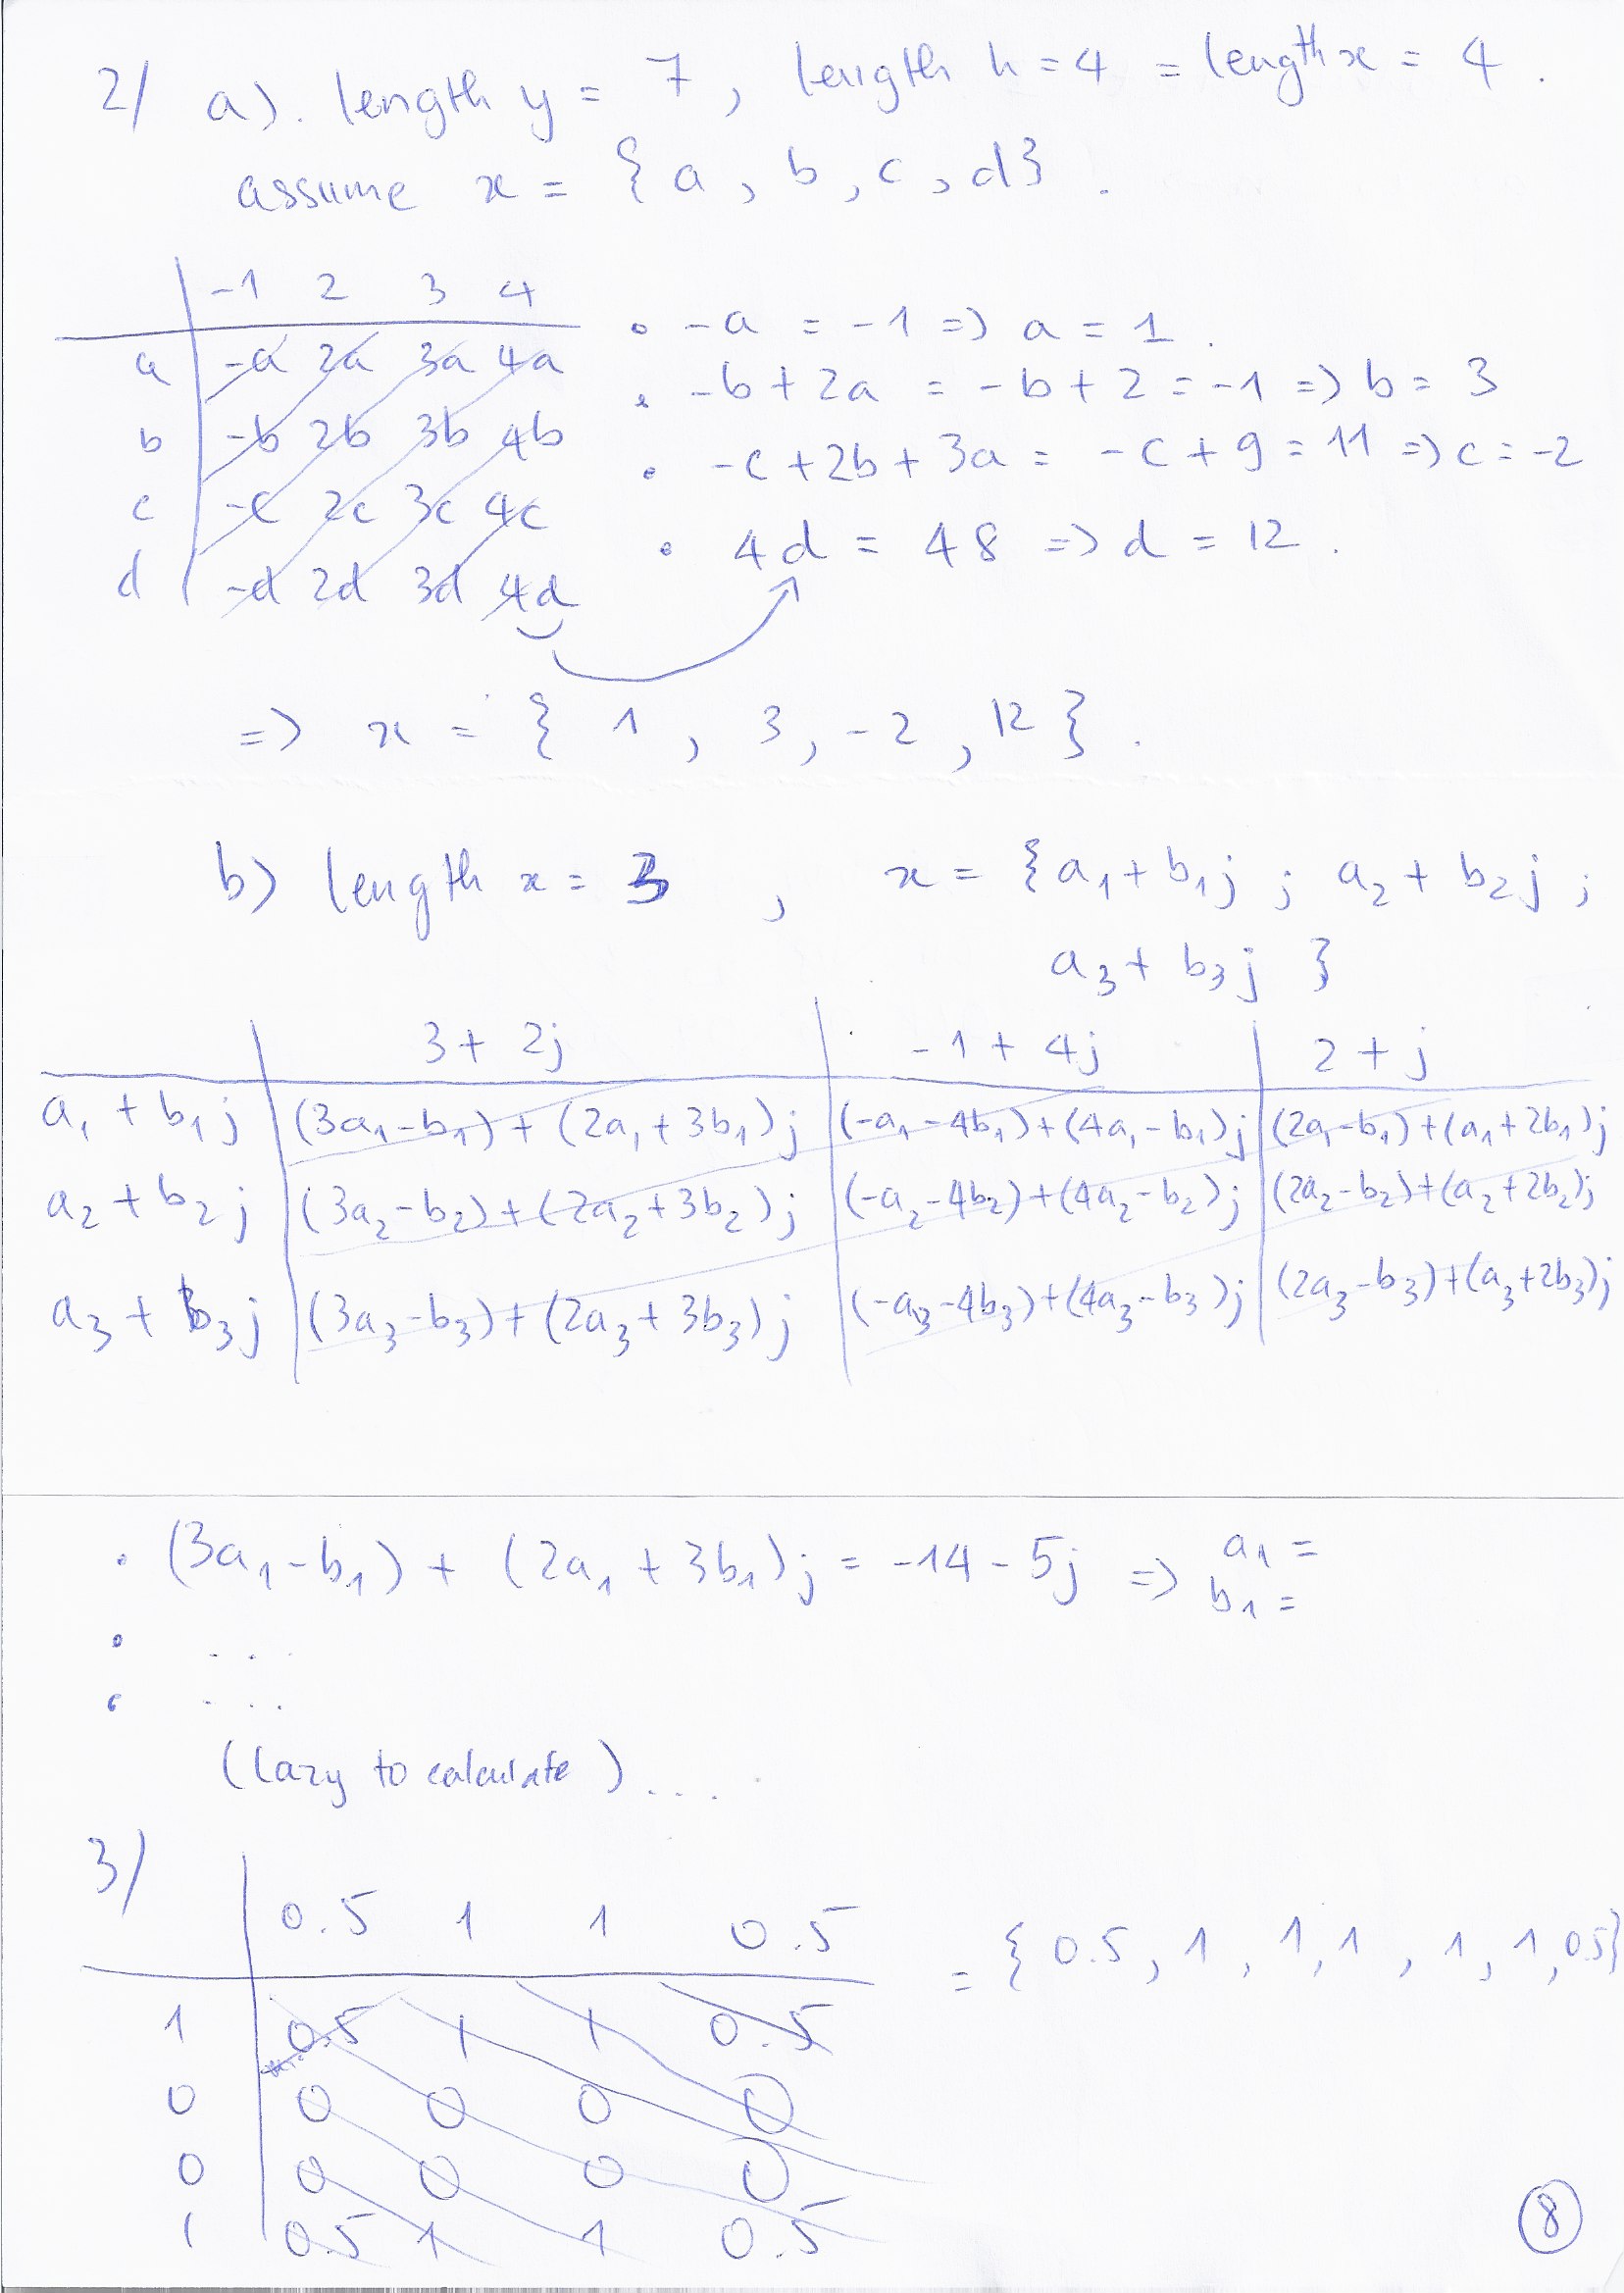 2/ a). length y = 7, length h = 4 = length x = 4.
assume x = {a, b, c, d}.
-1 2 3 4
a -a 2a 3a 4a
b -b 2b 3b 4b
c -c 2c 3c 4c
d -d 2d 3d 4d
• -a = -1 => a = 1.
• -b + 2a = -b + 2 = -1 => b = 3
• -c + 2b + 3a = -c + 9 = 11 => c = -2
• 4d = 48 => d = 12.
=> x = {1, 3, -2, 12}.
b) length x = 3, x = {a₁ + b₁j ; a₂ + b₂j ;
a₃ + b₃j }
3 + 2j -1 + 4j 2 + j
a₁ + b₁j (3a₁-b₁) + (2a₁+3b₁)j (-a₁-4b₁)+(4a₁-b₁)j (2a₁-b₁)+(a₁+2b₁)j
a₂ + b₂j (3a₂-b₂)+(2a₂+3b₂)j (-a₂-4b₂)+(4a₂-b₂)j (2a₂-b₂)+(a₂+2b₂)j
a₃ + b₃j (3a₃-b₃)+(2a₃+3b₃)j (-a₃-4b₃)+(4a₃-b₃)j (2a₃-b₃)+(a₃+2b₃)j
• (3a₁-b₁) + (2a₁ + 3b₁)j = -14 - 5j => a₁ =
b₁ =
• ...
• ...
(lazy to calculate) ....
3/
0.5 1 1 0.5
1 0.5 1 1 0.5
0 0 0 0 0
0 0 0 0 0
1 0.5 1 1 0.5
= {0.5, 1, 1, 1, 1, 1, 0.5}
8